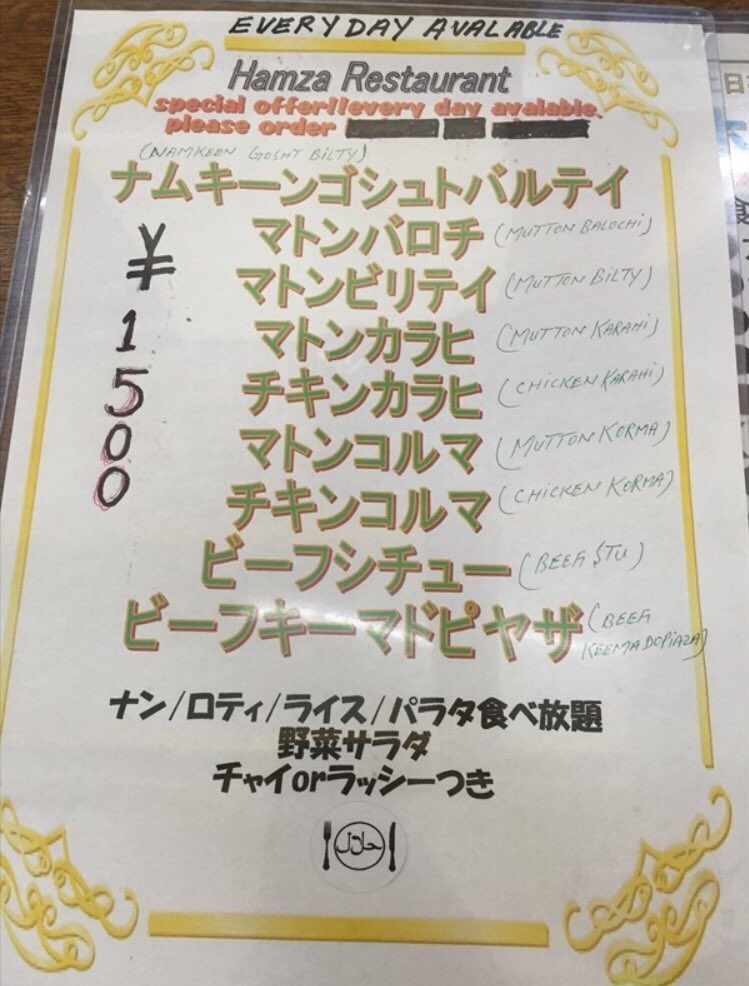 EVERYDAY AVALABLE
Hamza Restaurant
special offer!!every day avalable.
please order
(NAMKEEN GOSHT BILTY)
ナムキーンゴシュトバルテイ
マトンバロチ (MUTTON BALOCHI)
マトンビリテイ (MUTTON BILTY)
マトンカラヒ (MUTTON KARAHI)
チキンカラヒ (CHICKEN KARAHI)
マトンコルマ (MUTTON KORMA)
チキンコルマ (CHICKEN KORMA)
ビーフシチュー (BEEF STU)
ビーフキーマドピヤザ (BEEF KEEMA DOPIAZA)
¥1500
ナン/ロティ/ライス/パラタ食べ放題
野菜サラダ
チャイorラッシーつき
حلال
日